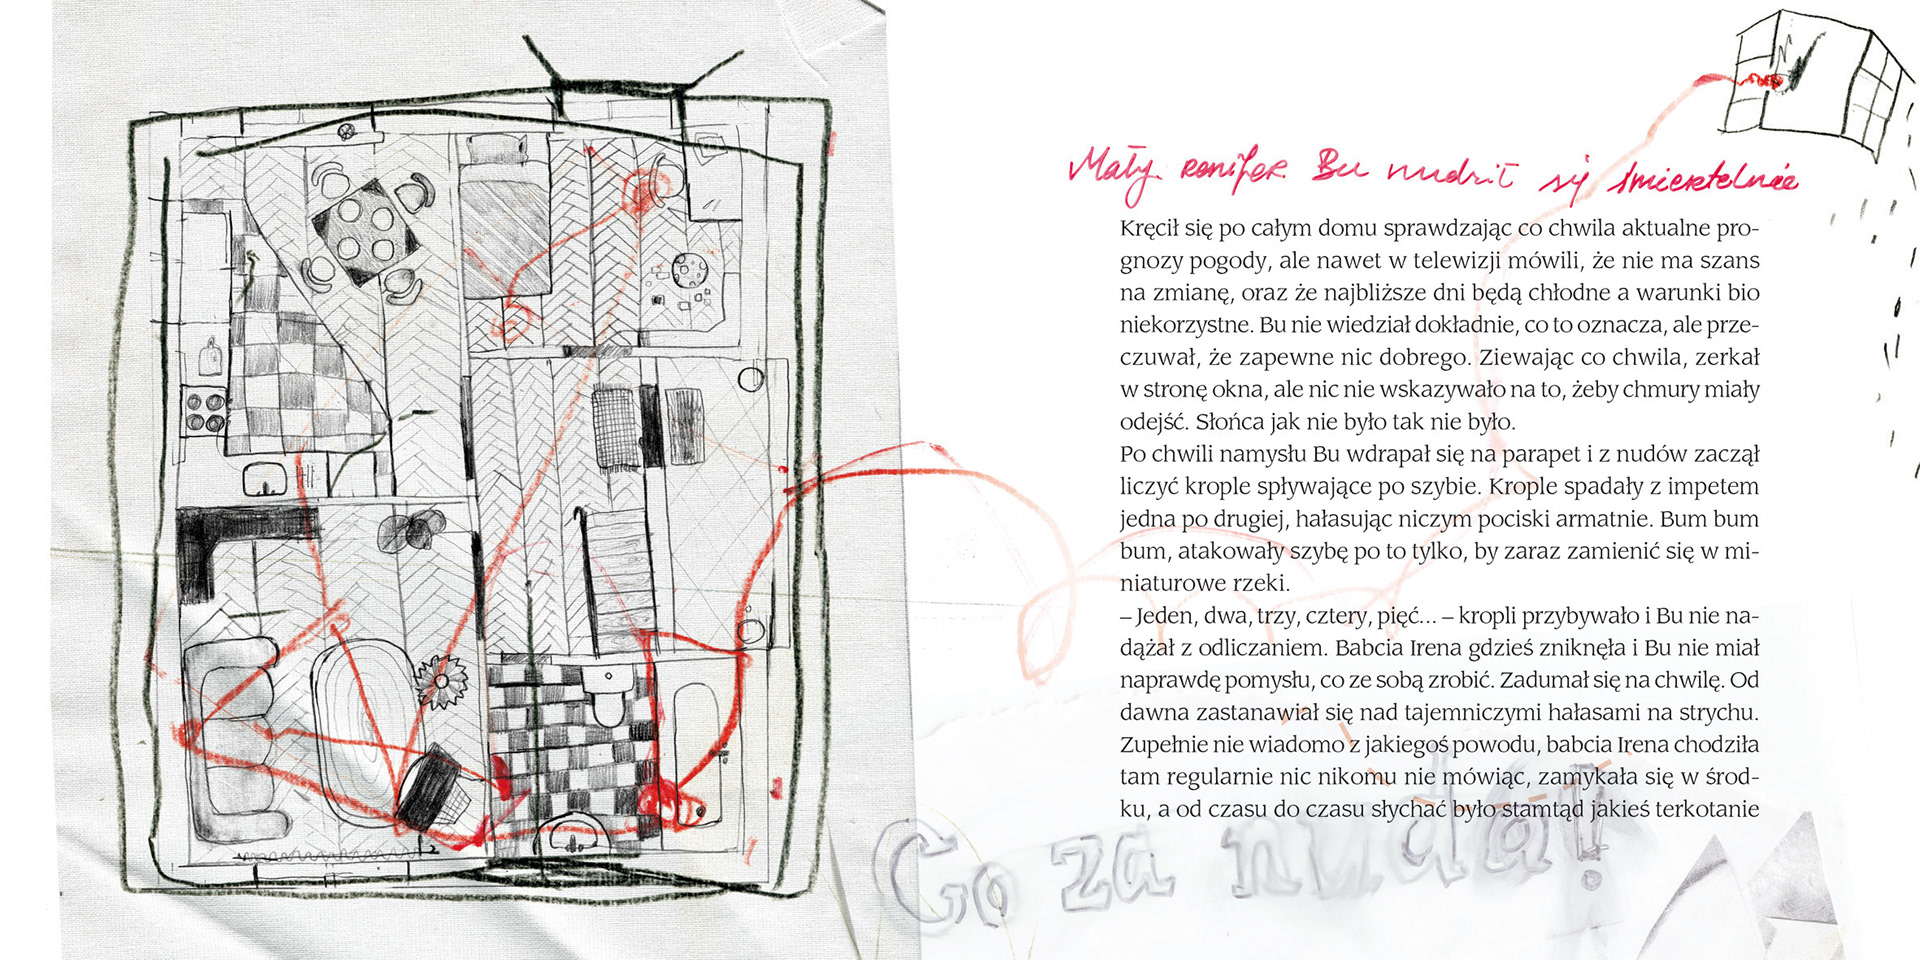 Mały renifer Bu nudził się śmiertelnie
Kręcił się po całym domu sprawdzając co chwila aktualne pro-
gnozy pogody, ale nawet w telewizji mówili, że nie ma szans
na zmianę, oraz że najbliższe dni będą chłodne a warunki bio
niekorzystne. Bu nie wiedział dokładnie, co to oznacza, ale prze-
czuwał, że zapewne nic dobrego. Ziewając co chwila, zerkał
w stronę okna, ale nic nie wskazywało na to, żeby chmury miały
odejść. Słońca jak nie było tak nie było.
Po chwili namysłu Bu wdrapał się na parapet i z nudów zaczął
liczyć krople spływające po szybie. Krople spadały z impetem
jedna po drugiej, hałasując niczym pociski armatnie. Bum bum
bum, atakowały szybę po to tylko, by zaraz zamienić się w mi-
niaturowe rzeki.
– Jeden, dwa, trzy, cztery, pięć... – kropli przybywało i Bu nie na-
dążał z odliczaniem. Babcia Irena gdzieś zniknęła i Bu nie miał
naprawdę pomysłu, co ze sobą zrobić. Zadumał się na chwilę. Od
dawna zastanawiał się nad tajemniczymi hałasami na strychu.
Zupełnie nie wiadomo z jakiegoś powodu, babcia Irena chodziła
tam regularnie nic nikomu nie mówiąc, zamykała się w środ-
ku, a od czasu do czasu słychać było stamtąd jakieś terkotanie
Co za nuda!